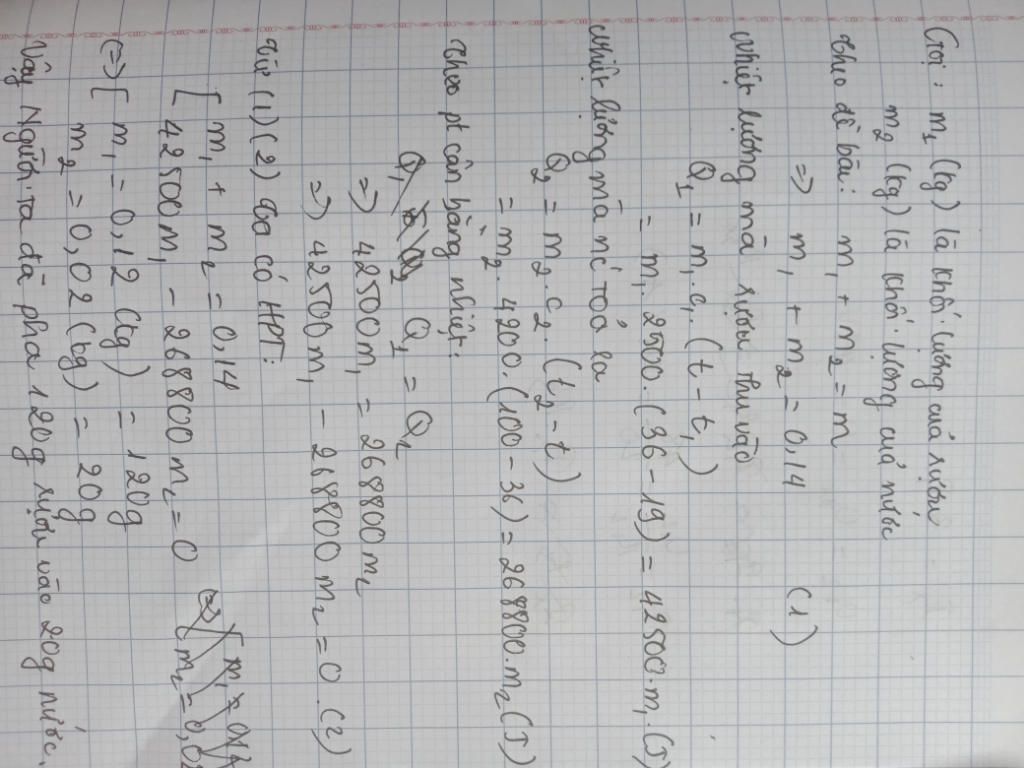 Gọi: m₁ (kg) là khối lượng của rượu
m₂ (kg) là khối lượng của nước
Theo đề bài: m₁ + m₂ = m
=> m₁ + m₂ = 0,14 (1)
Nhiệt lượng mà rượu thu vào
Q₁ = m₁.c₁.(t - t₁)
= m₁.2500.(36 - 19) = 42500.m₁.(J)
Nhiệt lượng mà nc' toả ra
Q₂ = m₂.c₂.(t₂ - t)
= m₂.4200.(100 - 36) = 268800.m₂(J)
Theo pt cân bằng nhiệt:
Q₁ = Q₂
=> 42500m₁ = 268800m₂
=> 42500m₁ - 268800m₂ = 0.(2)
Từ (1)(2) ta có HPT:
[ m₁ + m₂ = 0,14
[ 42500m₁ - 268800m₂ = 0
(=) [ m₁ = 0,12 (kg) = 120g
m₂ = 0,02 (kg) = 20g
Vậy Người ta đã pha 120g rượu vào 20g nước.